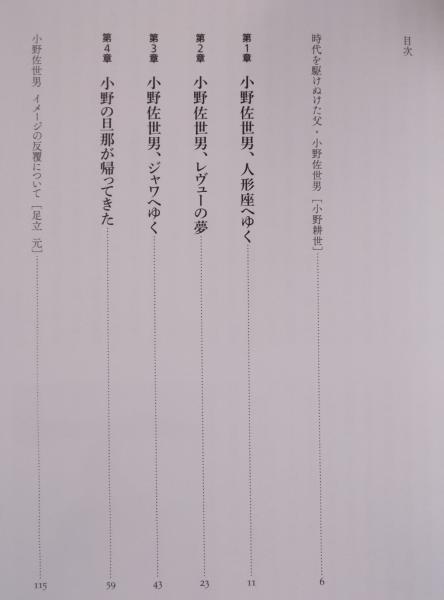 目次
時代を駆けぬけた父・小野佐世男 [小野耕世] 6
第1章 小野佐世男、人形座へゆく 11
第2章 小野佐世男、レヴューの夢 23
第3章 小野佐世男、ジャワへゆく 43
第4章 小野の旦那が帰ってきた 59
小野佐世男 イメージの反覆について [足立 元] 115